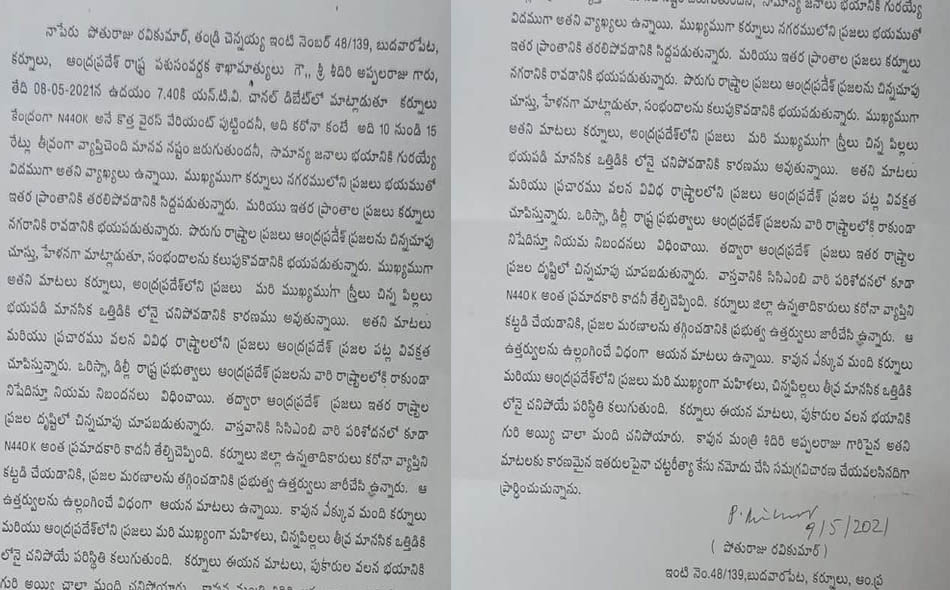 నాపేరు పోతురాజు రవికుమార్, తండ్రి చెన్నయ్య ఇంటి నెంబర్ 48/139, బుదవారపేట,
కర్నూలు, ఆంధ్రప్రదేశ్ రాష్ట్ర పశుసంవర్ధక శాఖామాత్యులు గౌ,, శ్రీ శీదిరి అప్పలరాజు గారు,
తేది 08-05-2021న ఉదయం 7.40కి యన్.టి.వి. చానల్ డిబేట్‌లో మాట్లాడుతూ కర్నూలు
కేంద్రంగా N440K అనే కొత్త వైరస్ వేరియంట్ పుట్టిందనీ, అది కరోనా కంటే అది 10 నుండి 15
రేట్లు తీవ్రంగా వ్యాప్తిచెంది మానవ నష్టం జరుగుతుందనీ, సామాన్య జనాలు భయానికి గురయ్యే
విదముగా అతని వ్యాఖ్యలు ఉన్నాయి. ముఖ్యముగా కర్నూలు నగరములోని ప్రజలు భయముతో
ఇతర ప్రాంతానికి తరలిపోవడానికి సిద్దపడుతున్నారు. మరియు ఇతర ప్రాంతాల ప్రజలు కర్నూలు
నగరానికి రావడానికి భయపడుతున్నారు. పొరుగు రాష్ట్రాల ప్రజలు ఆంధ్రప్రదేశ్ ప్రజలను చిన్నచూపు
చూస్తు, హేళనగా మాట్లాడుతూ, సంభందాలను కలుపుకొవడానికి భయపడుతున్నారు. ముఖ్యముగా
అతని మాటలు కర్నూలు, అంధ్రప్రదేశ్‌లోని ప్రజలు మరి ముఖ్యముగా స్త్రీలు చిన్న పిల్లలు
భయపడి మానసిక ఒత్తిడికి లోనై చనిపోవడానికి కారణము అవుతున్నాయి. అతని మాటలు
మరియు ప్రచారము వలన వివిధ రాష్ట్రాలలోని ప్రజలు ఆంధ్రప్రదేశ్ ప్రజల పట్ల వివక్షత
చూపిస్తున్నారు. ఒరిస్సా, డిల్లీ రాష్ట్ర ప్రభుత్వాలు ఆంధ్రప్రదేశ్ ప్రజలను వారి రాష్ట్రాలలోకి రాకుండా
నిషేదిస్తూ నియమ నిబందనలు విధించాయి. తద్వారా ఆంధ్రప్రదేశ్ ప్రజలు ఇతర రాష్ట్రాల
ప్రజల దృష్టిలో చిన్నచూపు చూపబడుతున్నారు. వాస్తవానికి సిసిఎంబి వారి పరిశోదనలో కూడా
N440K అంత ప్రమాదకారి కాదనీ తేల్చిచెప్పింది. కర్నూలు జిల్లా ఉన్నతాదికారులు కరోనా వ్యాప్తిని
కట్టడి చేయడానికి, ప్రజల మరణాలను తగ్గించడానికి ప్రభుత్వ ఉత్తర్వులు జారీచేసి ఉన్నారు. ఆ
ఉత్తర్వులను ఉల్లంగించే విధంగా ఆయన మాటలు ఉన్నాయి. కావున వేక్కువ మంది కర్నూలు
మరియు ఆంధ్రప్రదేశ్‌లోని ప్రజలు మరి ముఖ్యంగా మహిళలు, చిన్నపిల్లలు తీవ్ర మానసిక ఒత్తిడికి
లోనై చనిపోయే పరిస్థితి కలుగుతుంది. కర్నూలు ఈయన మాటలు, పుకారుల వలన భయానికి
గురి అయ్యి చాలా మంది చనిపోయారు.
సామాన్య జనాలు భయానికి గురయ్యే
విదముగా అతని వ్యాఖ్యలు ఉన్నాయి. ముఖ్యముగా కర్నూలు నగరములోని ప్రజలు భయముతో
ఇతర ప్రాంతానికి తరలిపోవడానికి సిద్దపడుతున్నారు. మరియు ఇతర ప్రాంతాల ప్రజలు కర్నూలు
నగరానికి రావడానికి భయపడుతున్నారు. పొరుగు రాష్ట్రాల ప్రజలు ఆంధ్రప్రదేశ్ ప్రజలను చిన్నచూపు
చూస్తు, హేళనగా మాట్లాడుతూ, సంభందాలను కలుపుకొవడానికి భయపడుతున్నారు. ముఖ్యముగా
అతని మాటలు కర్నూలు, అంధ్రప్రదేశ్‌లోని ప్రజలు మరి ముఖ్యముగా స్త్రీలు చిన్న పిల్లలు
భయపడి మానసిక ఒత్తిడికి లోనై చనిపోవడానికి కారణము అవుతున్నాయి. అతని మాటలు
మరియు ప్రచారము వలన వివిధ రాష్ట్రాలలోని ప్రజలు ఆంధ్రప్రదేశ్ ప్రజల పట్ల వివక్షత
చూపిస్తున్నారు. ఒరిస్సా, డిల్లీ రాష్ట్ర ప్రభుత్వాలు ఆంధ్రప్రదేశ్ ప్రజలను వారి రాష్ట్రాలలోకి రాకుండా
నిషేదిస్తూ నియమ నిబందనలు విధించాయి. తద్వారా ఆంధ్రప్రదేశ్ ప్రజలు ఇతర రాష్ట్రాల
ప్రజల దృష్టిలో చిన్నచూపు చూపబడుతున్నారు. వాస్తవానికి సిసిఎంబి వారి పరిశోదనలో కూడా
N440K అంత ప్రమాదకారి కాదనీ తేల్చిచెప్పింది. కర్నూలు జిల్లా ఉన్నతాదికారులు కరోనా వ్యాప్తిని
కట్టడి చేయడానికి, ప్రజల మరణాలను తగ్గించడానికి ప్రభుత్వ ఉత్తర్వులు జారీచేసి ఉన్నారు. ఆ
ఉత్తర్వులను ఉల్లంగించే విధంగా ఆయన మాటలు ఉన్నాయి. కావున వేక్కువ మంది కర్నూలు
మరియు ఆంధ్రప్రదేశ్‌లోని ప్రజలు మరి ముఖ్యంగా మహిళలు, చిన్నపిల్లలు తీవ్ర మానసిక ఒత్తిడికి
లోనై చనిపోయే పరిస్థితి కలుగుతుంది. కర్నూలు ఈయన మాటలు, పుకారుల వలన భయానికి
గురి అయ్యి చాలా మంది చనిపోయారు. కావున మంత్రి శీదిరి అప్పలరాజు గారిపైన అతని
మాటలకు కారణమైన ఇతరులపైనా చట్టరీత్యా కేసు నమోదు చేసి సమగ్రవిచారణ చేయవలసినదిగా
ప్రార్థించుచున్నాను.
9/5/2021
( పోతురాజు రవికుమార్ )
ఇంటి నెం.48/139,బుదవారపేట, కర్నూలు, ఆం.ప్ర